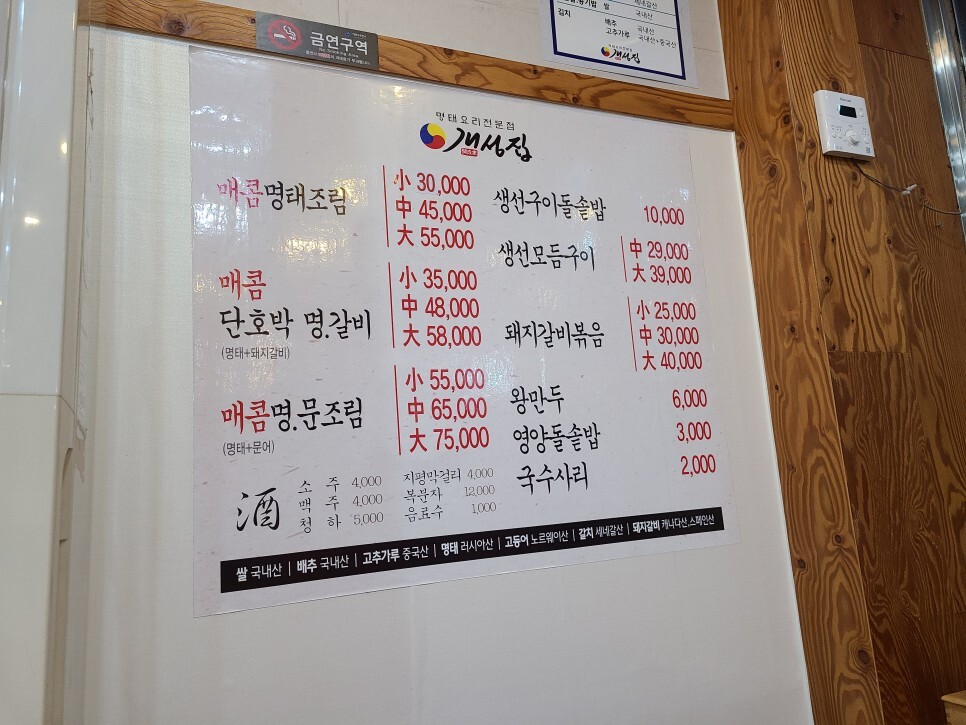 금연구역
No Smoking Area
공기밥 쌀 세네갈산
국내산
김치 배추 국내산
고추가루 국내산+중국산
개성집
명태요리전문점
개성집
매콤명태조림
小 30,000
中 45,000
大 55,000
매콤
단호박 명.갈비
(명태+돼지갈비)
小 35,000
中 48,000
大 58,000
매콤명.문조림
(명태+문어)
小 55,000
中 65,000
大 75,000
생선구이돌솥밥 10,000
생선모듬구이
中 29,000
大 39,000
돼지갈비볶음
小 25,000
中 30,000
大 40,000
왕만두 6,000
영양돌솥밥 3,000
국수사리 2,000
酒
소 주 4,000
맥 주 4,000
청 하 5,000
지평막걸리 4,000
복분자 12,000
음료수 1,000
쌀 국내산 | 배추 국내산 | 고추가루 중국산 | 명태 러시아산 | 고등어 노르웨이산 | 갈치 세네갈산 | 돼지갈비 캐나다산,스페인산